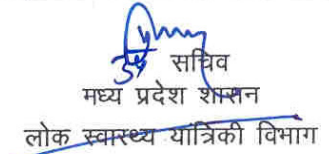 सचिव
मध्य प्रदेश शासन
लोक स्वास्थ्य यांत्रिकी विभाग